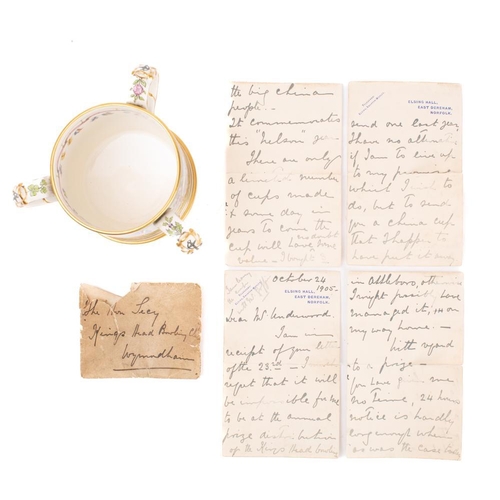 the big china
people --
It commemorates
this "Nelson" year
There are only
a limited number
of cups made
& some day in
years to come the
no doubt
cup will have some
value -
ELSING HALL,
EAST DEREHAM,
NORFOLK.
send one last year
I have no
to my promise
which I to
do, but to send
you a china cup
that I happen to
have
The Hon Secy
Kings Head Bowling Cl
Wymondham
October 24
1905-
ELSING HALL,
EAST DEREHAM,
NORFOLK.
Dear Mr Underwood
I am in
receipt of your letter
of the 23rd - I
regret that it will
be impossible for me
to be at the annual
prize distribution
of the Kings Head bowling
in Attleboro,
I might have
managed it, on
my way home -
With regard
to a prize -
you have given me
no Time, 24 hours
notice is hardly
long enough when
as was the case